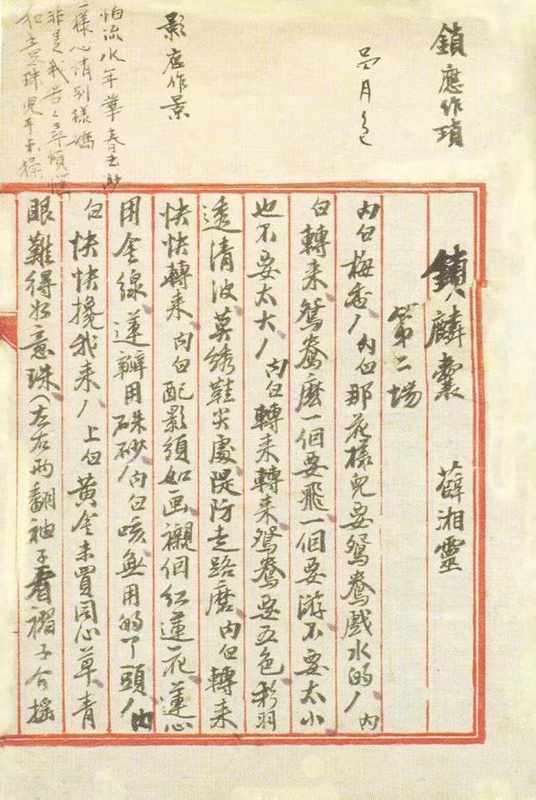 鎖應作瑣
影應作景
怕流水年華春去渺
一樣心情別樣嬌
非是我苦苦尋煩惱
如意珠兒手未操
鎖麟囊 薛湘靈
第二場
內白梅香/內白那花樣兒要鴛鴦戲水的/內
白轉來鴛鴦麽一個要飛一個要游不要太小
也不要太大/內白轉來轉來鴛鴦要五色彩羽
透清波莫綉鞋尖處隄防走路磨內白轉來
快快轉來內白配影須如画襯個紅蓮花蓮心
用金線蓮瓣用硃砂/內白咳無用的丫頭/內
白快快攙我來/上白黃金未買同心草青
眼難得如意珠(左右兩翻袖子看褶子合搖